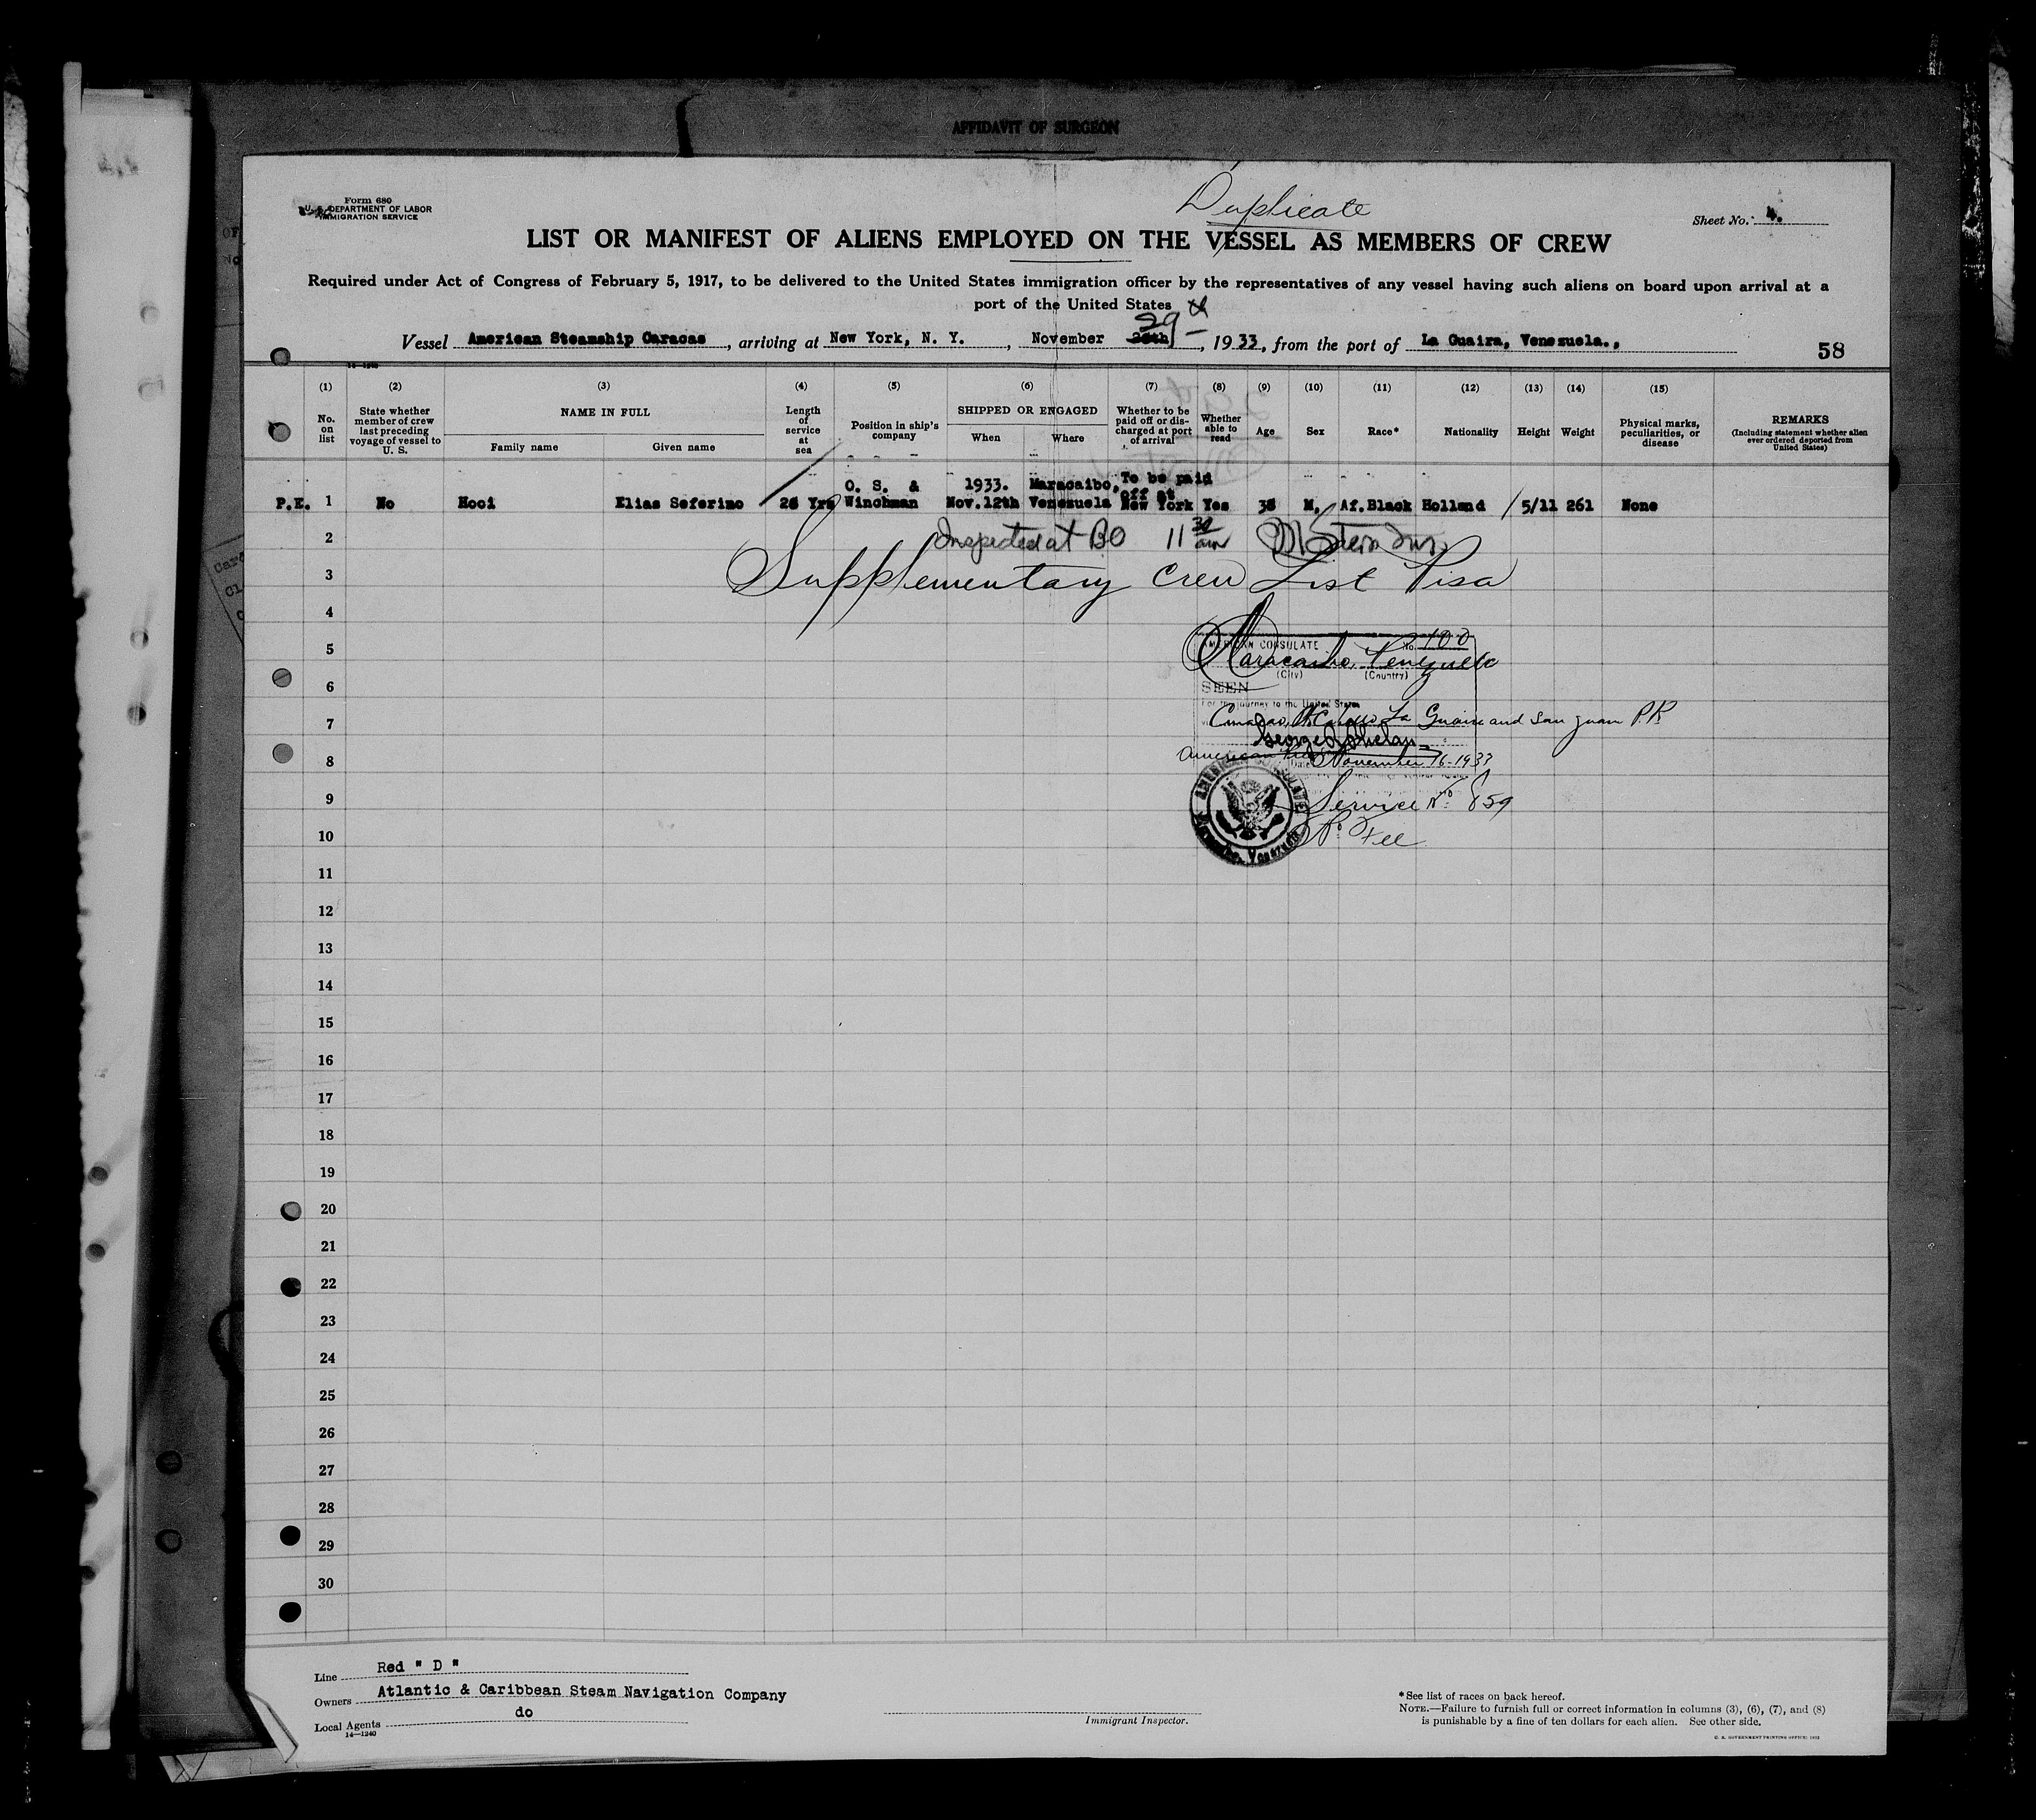 AFFIDAVIT OF SURGEON
Form 680
U. S. DEPARTMENT OF LABOR
IMMIGRATION SERVICE
Duplicate
Sheet No. 4.
LIST OR MANIFEST OF ALIENS EMPLOYED ON THE VESSEL AS MEMBERS OF CREW
Required under Act of Congress of February 5, 1917, to be delivered to the United States immigration officer by the representatives of any vessel having such aliens on board upon arrival at a
port of the United States
Vessel American Steamship Caracas, arriving at New York, N. Y., November 29th, 1933, from the port of La Guaira, Venezuela.,
58
(1) (2) (3) (4) (5) (6) (7) (8) (9) (10) (11) (12) (13) (14) (15)
No. on list
State whether member of crew last preceding voyage of vessel to U. S.
NAME IN FULL
Family name Given name
Length of service at sea
Position in ship's company
SHIPPED OR ENGAGED
When Where
Whether to be paid off or discharged at port of arrival
Whether able to read
Age
Sex
Race*
Nationality
Height
Weight
Physical marks, peculiarities, or disease
REMARKS
(Including statement whether alien ever ordered deported from United States)
O. S. & 1933. Maracaibo, To be paid off at
P.E. 1 No Hooi Elias Seferino Yrs Winchman Nov.12th Venezuela New York Yes M. Af.Black Holland 5/11 261 None
2 Inspected at BO 11 30 am
3 Supplementary Crew List Visa
4
5 AMERICAN CONSULATE No. 100
Maracaibo, Venezuela
(City) (Country)
6 SEEN
For the journey to the United States
7 Curacao, La Guaira and San Juan P.R.
George R Phelan
8 American November 16-1933
9 Service No 859
10 No Fee
AMERICAN CONSULATE
Maracaibo, Venezuela
11
12
13
14
15
16
17
18
19
20
21
22
23
24
25
26
27
28
29
30
Line Red " D "
Owners Atlantic & Caribbean Steam Navigation Company
Local Agents do
14—1240
Immigrant Inspector.
* See list of races on back hereof.
NOTE.—Failure to furnish full or correct information in columns (3), (6), (7), and (8)
is punishable by a fine of ten dollars for each alien. See other side.
U. S. GOVERNMENT PRINTING OFFICE: 1932